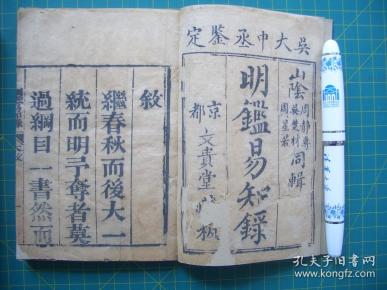 吳大中丞鑒定
山陰
周靜專
吳楚材
周星若
同輯
明鑑易知錄
京都文貴堂
敘
繼春秋而後大一
統而明予奪者莫
過綱目一書然而
孔夫子旧书网